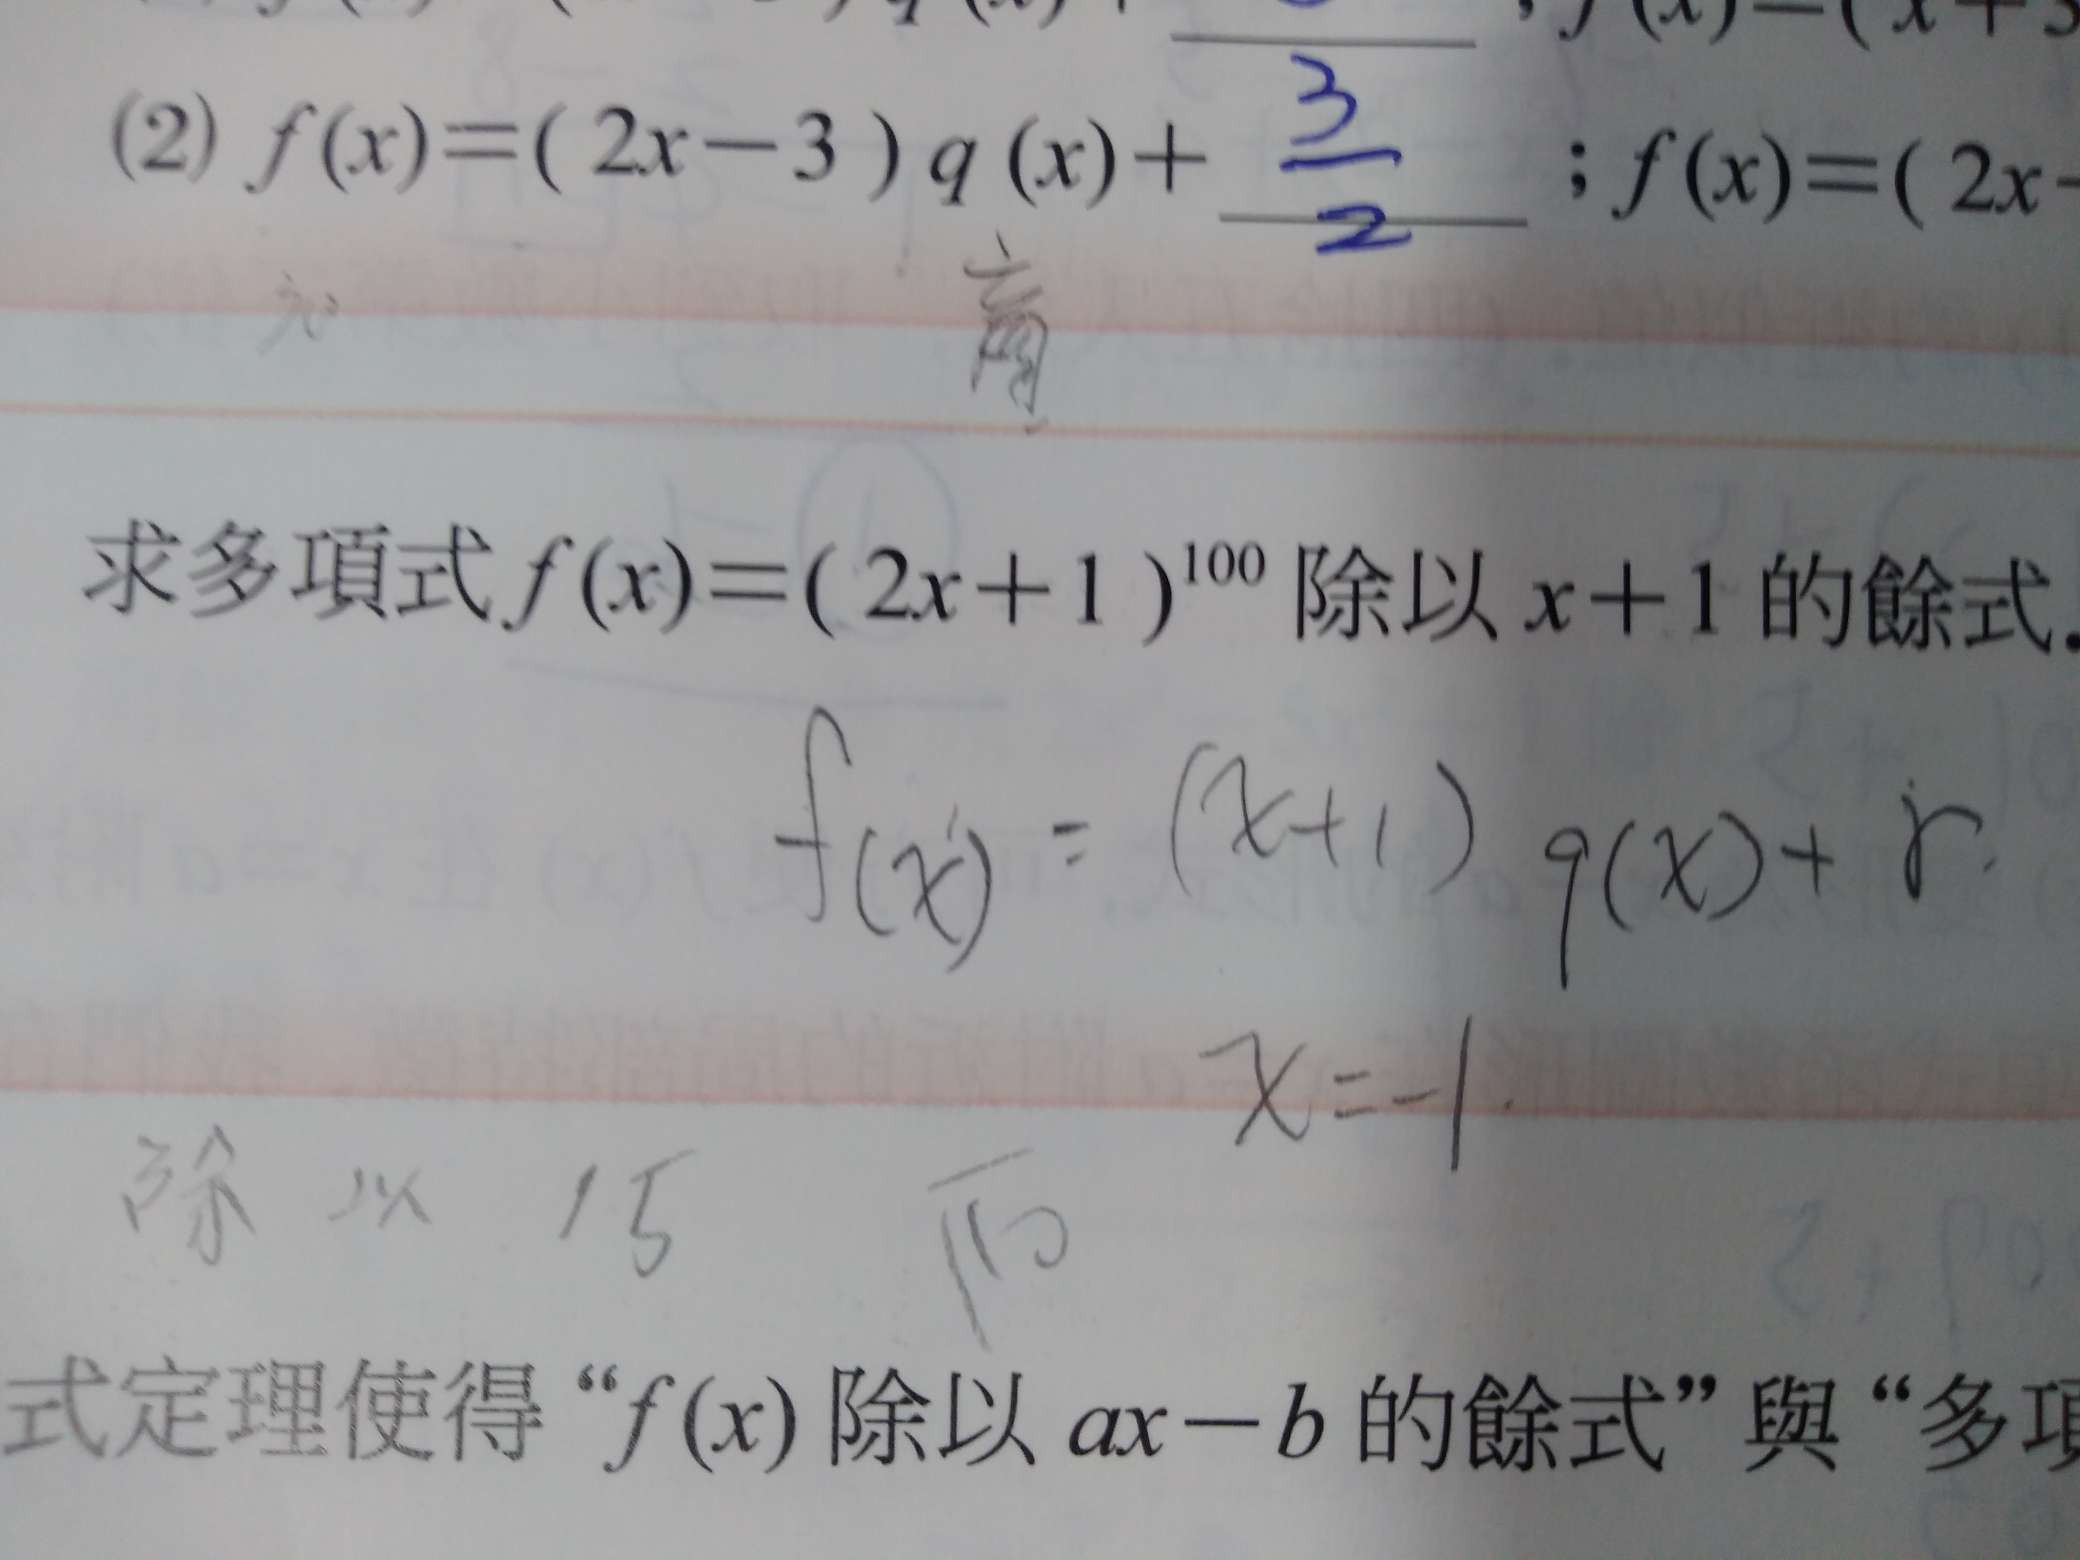 (2) f(x)=( 2x-3 ) q (x)+ 3/2 ; f(x)=( 2x-
商
求多項式 f(x)=( 2x+1 )^100 除以 x+1 的餘式.
f(x) = (x+1) q(x) + r.
x=-1.
除以 15
式定理使得 “f(x) 除以 ax-b 的餘式” 與 “多項